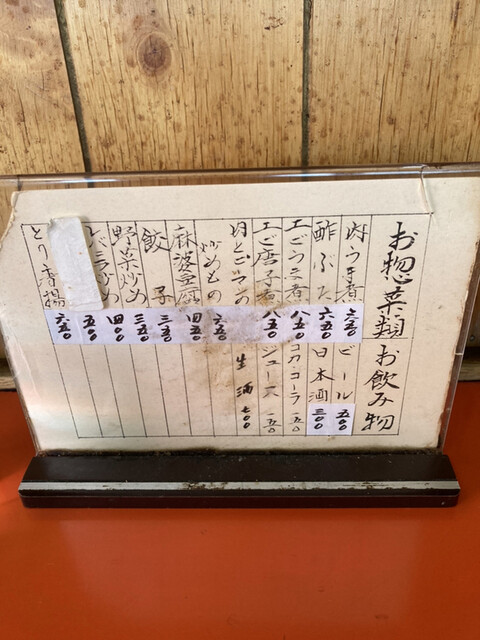 お惣菜類 お飲み物
肉うま煮 六〇〇 ビール 五〇〇
酢ぶた 六五〇 日本酒 三〇〇
エビうま煮 八五〇 コカ・コーラ 一五〇
エビ唐子煮 八五〇 ジュース 一五〇
肉と
炒めもの 六五〇 生酒 七〇〇
麻波豆腐 四五〇
餃子 三五〇
三五〇
野菜炒め 四〇〇
レバニラ炒め 五〇〇
とり唐揚 六五〇